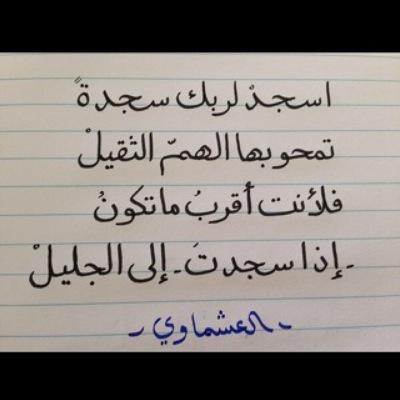 اسجدْ لربك سجدةً
تمحو بها الهمّ الثقيلْ
فلأنت أقربُ ما تكونُ
- إذا سجدتَ - إلى الجليلْ
- العشماوي -